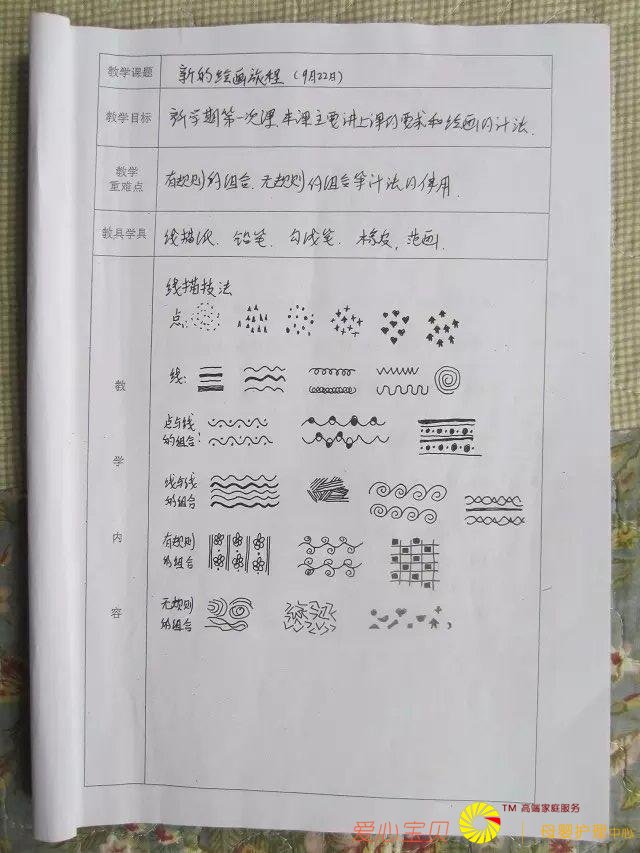 教学课题 新的绘画旅程（9月22日）
教学目标 新学期第一次课.本课主要讲上课的要求和绘画的计法.
教学
重难点 有规则的组合.无规则的组合等计法的使用.
教具学具 线描纸. 铅笔. 勾线笔. 橡皮. 范画.
教学内容
线描技法
点:
线:
点与线
的组合:
线与线
的组合
有规则
的组合
无规则
的组合
爱心宝贝 TM 高端家庭服务
母婴护理中心